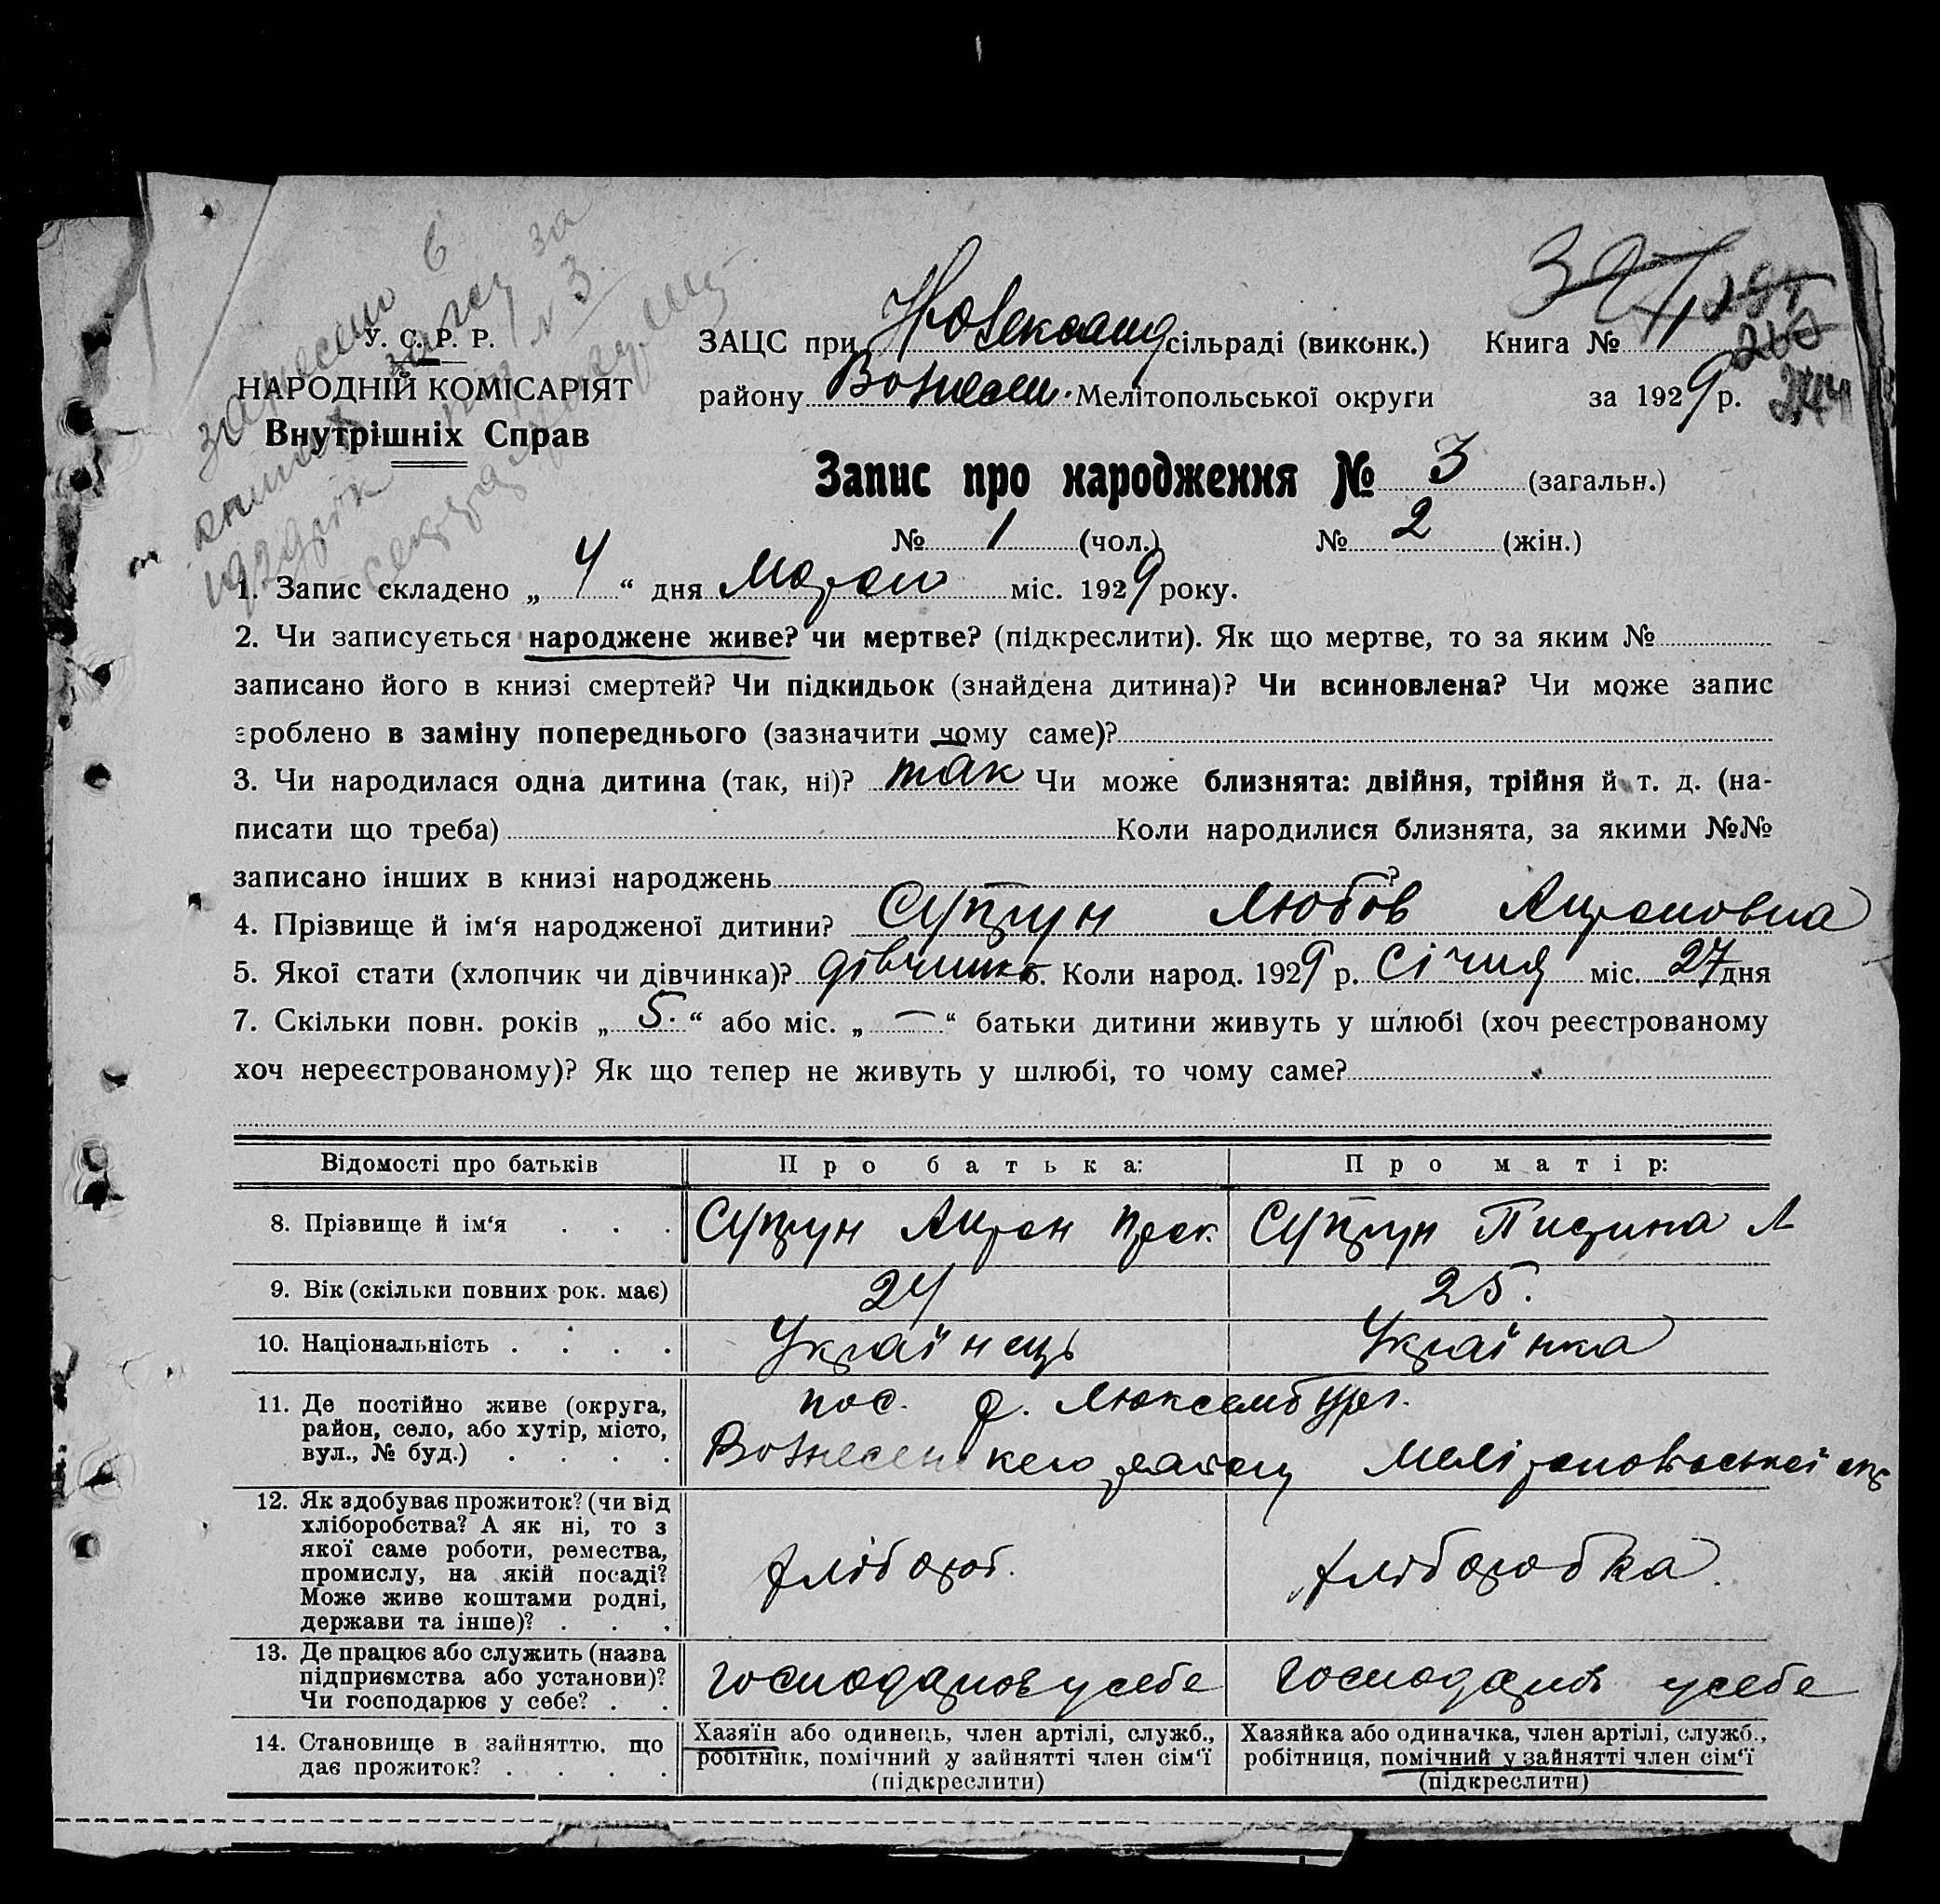 занесено в
книгу загсу за
1929 рік під № 3.
секретар
У. С. Р. Р.
НАРОДНІЙ КОМІСАРІЯТ
Внутрішніх Справ
ЗАЦС при Новоолександ сільраді (виконк.) Книга № 1
району Вознесен. Мелітопольської округи за 1929 р.
Запис про народження № 3 (загальн.)
№ 1 (чол.) № 2 (жін.)
1. Запис складено „ 4 “ дня Марта міс. 1929 року.
2. Чи записується народжене живе? чи мертве? (підкреслити). Як що мертве, то за яким №
записано його в книзі смертей? Чи підкидьок (знайдена дитина)? Чи всиновлена? Чи може запис
зроблено в заміну попереднього (зазначити чому саме)?
3. Чи народилася одна дитина (так, ні)? так Чи може близнята: двійня, трійня й т. д. (на-
писати що треба) Коли народилися близнята, за якими №№
записано інших в книзі народжень ?
4. Прізвище й ім‘я народженої дитини? Супрун Любов Антоновна
5. Якої стати (хлопчик чи дівчинка)? дівчинка 6. Коли народ. 1929 р. Січня міс. 27 дня
7. Скільки повн. років „ 5. “ або міс. „ — “ батьки дитини живуть у шлюбі (хоч реєстрованому
хоч нереєстрованому)? Як що тепер не живуть у шлюбі, то чому саме?
Відомості про батьків Про батька: Про матір:
8. Прізвище й ім‘я . . . Супрун Антон Прок. Супрун А
9. Вік (скільки повних рок. має) 24 25.
10. Національність . . . . Українець Українка
11. Де постійно живе (округа,
район, село, або хутір, місто,
вул., № буд.) . . . .
пос. Р. Люксембург.
Вознесенського району Мелітопольської окр
12. Як здобуває прожиток? (чи від
хліборобства? А як ні, то з
якої саме роботи, ремества,
промислу, на якій посаді?
Може живе коштами родні,
держави та інше)? . . .
хлібороб. хліборобка.
13. Де працює або служить (назва
підприємства або установи)?
Чи господарює у себе? . .
господарює у себе господарює у себе
14. Становище в зайняттю, що
дає прожиток? . . . .
Хазяїн або одинець, член артілі, служб.,
робітник, помічний у зайнятті член сім‘ї
(підкреслити)
Хазяйка або одиначка, член артілі, служб.,
робітниця, помічний у зайнятті член сім‘ї
(підкреслити)